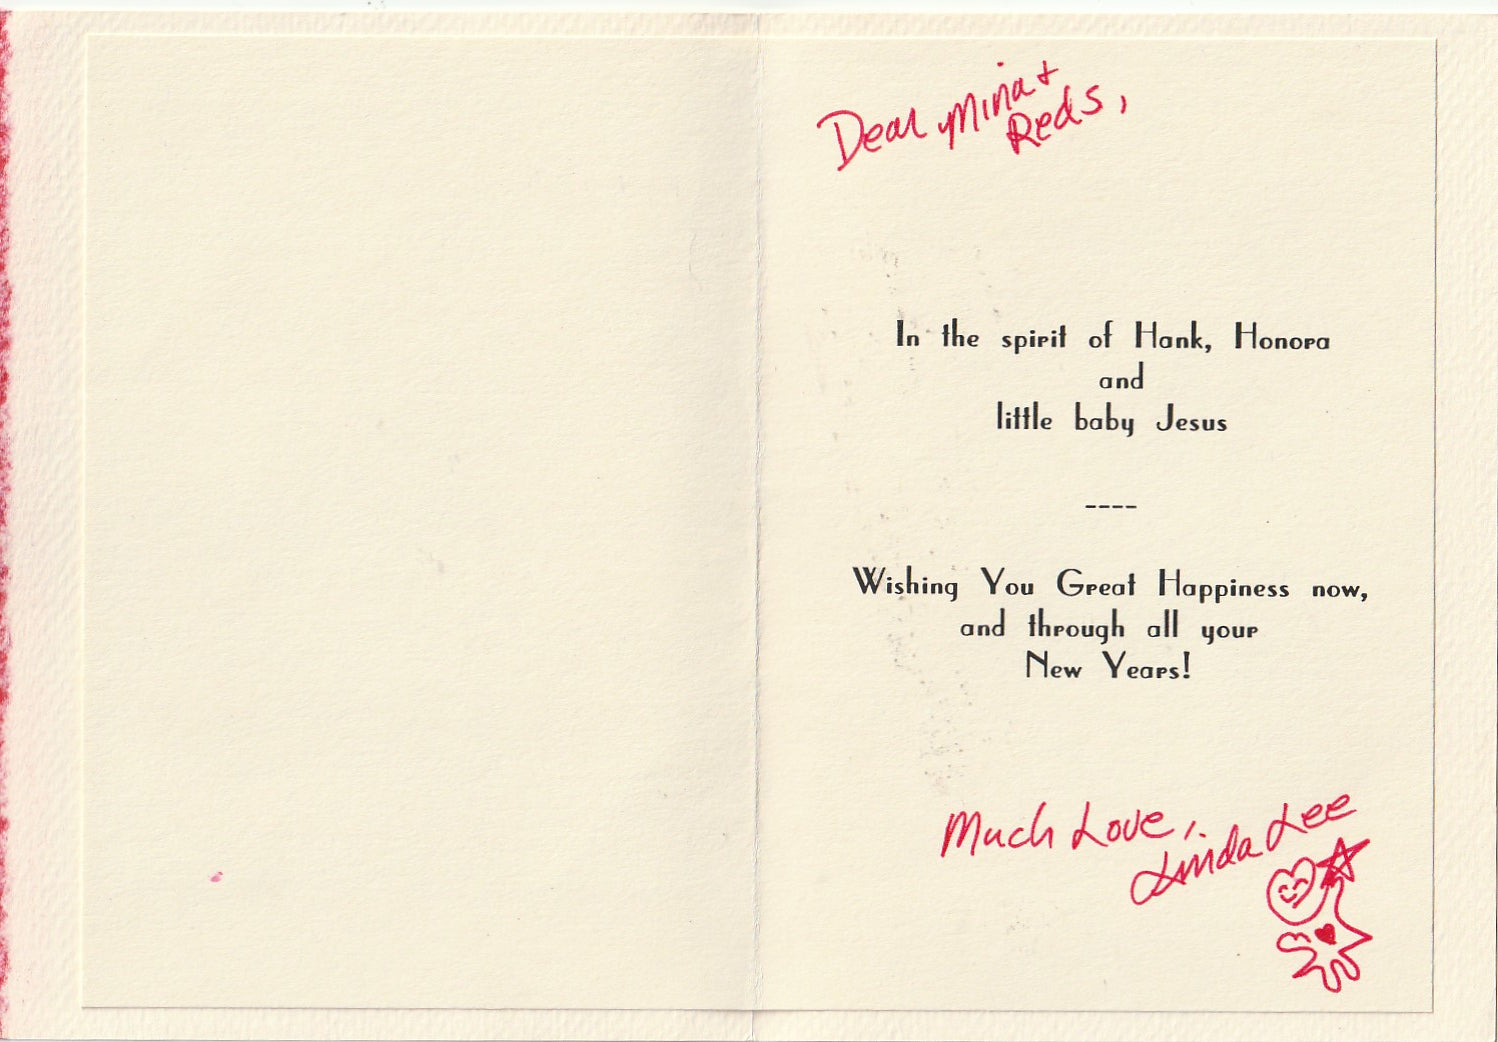 Dear Mina +
Reds,
In the spirit of Hank, Honora
and
little baby Jesus
----
Wishing You Great Happiness now,
and through all your
New Years!
Much Love,
Linda Lee